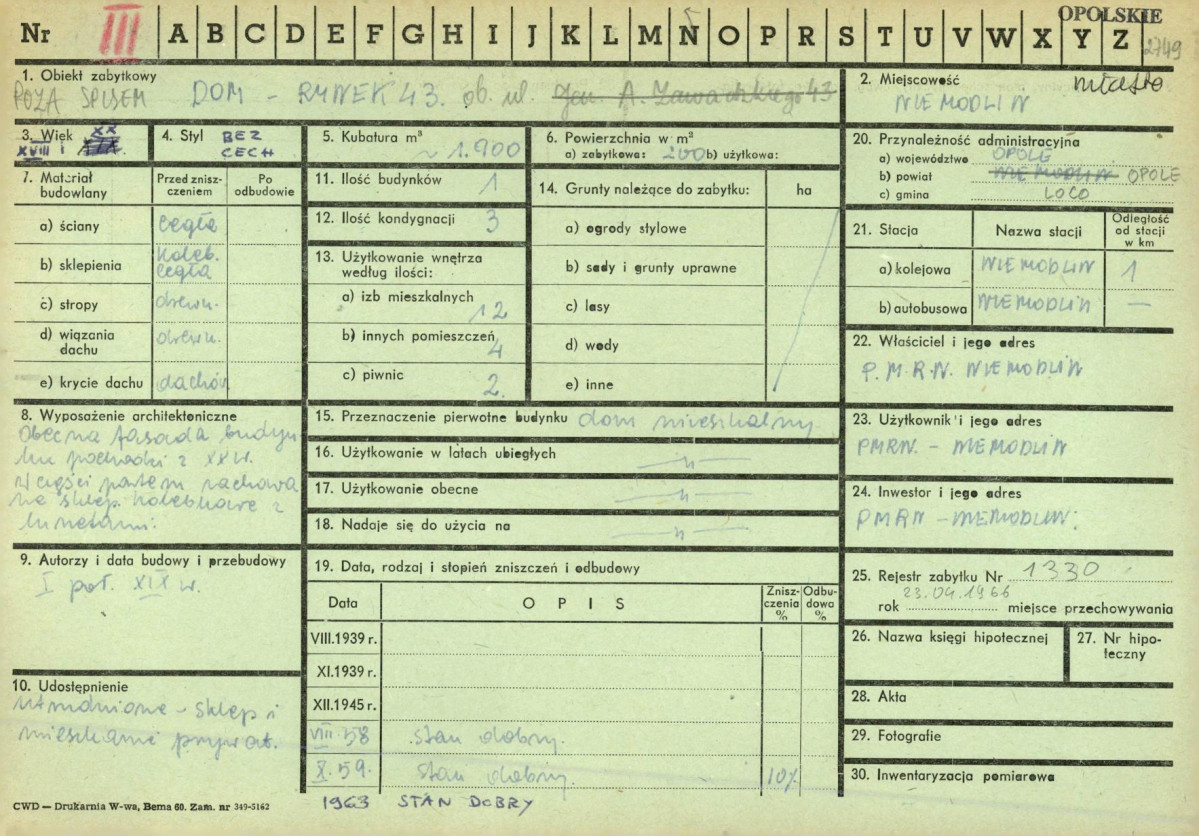 OPOLSKIE
Nr III A B C D E F G H I J K L M N O P R S T U V W X Y Z 2749
1. Obiekt zabytkowy
POZA SPISEM DOM - RYNEK 43. ob. ul. Gen. A. Zawadzkiego 43
2. Miejscowość miasto
NIEMODLIN
3. Wiek XX
XVIII i XIX.
4. Styl BEZ
CECH
5. Kubatura m³
~ 1.900
6. Powierzchnia w m²
a) zabytkowa: 200 b) użytkowa:
20. Przynależność administracyjna
a) województwo OPOLE
b) powiat NIEMODLIN OPOLE
c) gmina LOCO
7. Materiał budowlany
Przed znisz-czeniem
Po odbudowie
a) ściany cegła
b) sklepienia koleb. cegła
c) stropy drewn.
d) wiązania dachu drewn.
e) krycie dachu dachów
11. Ilość budynków 1
12. Ilość kondygnacji 3
13. Użytkowanie wnętrza
według ilości:
a) izb mieszkalnych 12
b) innych pomieszczeń 4
c) piwnic 2.
14. Grunty należące do zabytku: ha
a) ogrody stylowe
b) sady i grunty uprawne
c) lasy
d) wody
e) inne
21. Stacja Nazwa stacji Odległość od stacji w km
a) kolejowa NIEMODLIN 1
b) autobusowa NIEMODLIN —
22. Właściciel i jego adres
P.M.R.N. NIEMODLIN
8. Wyposażenie architektoniczne
Obecna fasada budyn
ku pochodzi z XX w.
W części parteru zachowa
ne sklep. kolebkowe z
lunetami.
15. Przeznaczenie pierwotne budynku dom mieszkalny
16. Użytkowanie w latach ubiegłych —"—
17. Użytkowanie obecne —"—
18. Nadaje się do użycia na —"—
23. Użytkownik i jego adres
PMRN. - NIEMODLIN
24. Inwestor i jego adres
PMRN - NIEMODLIN.
9. Autorzy i data budowy i przebudowy
I poł. XIX w.
10. Udostępnienie
utrudnione - sklep i
mieszkanie prywat.
19. Data, rodzaj i stopień zniszczeń i odbudowy
Data OPIS Znisz-czenia % Odbu-dowa %
VIII.1939 r.
XI.1939 r.
XII.1945 r.
VIII.58 stan dobry.
X.59. stan dobry. 10%
1963 STAN DOBRY
25. Rejestr zabytku Nr 1330
23.04.1966
rok miejsce przechowywania
26. Nazwa księgi hipotecznej
27. Nr hipo-
teczny
28. Akta
29. Fotografie
30. Inwentaryzacja pomiarowa
CWD — Drukarnia W-wa, Bema 60. Zam. nr 349-5162